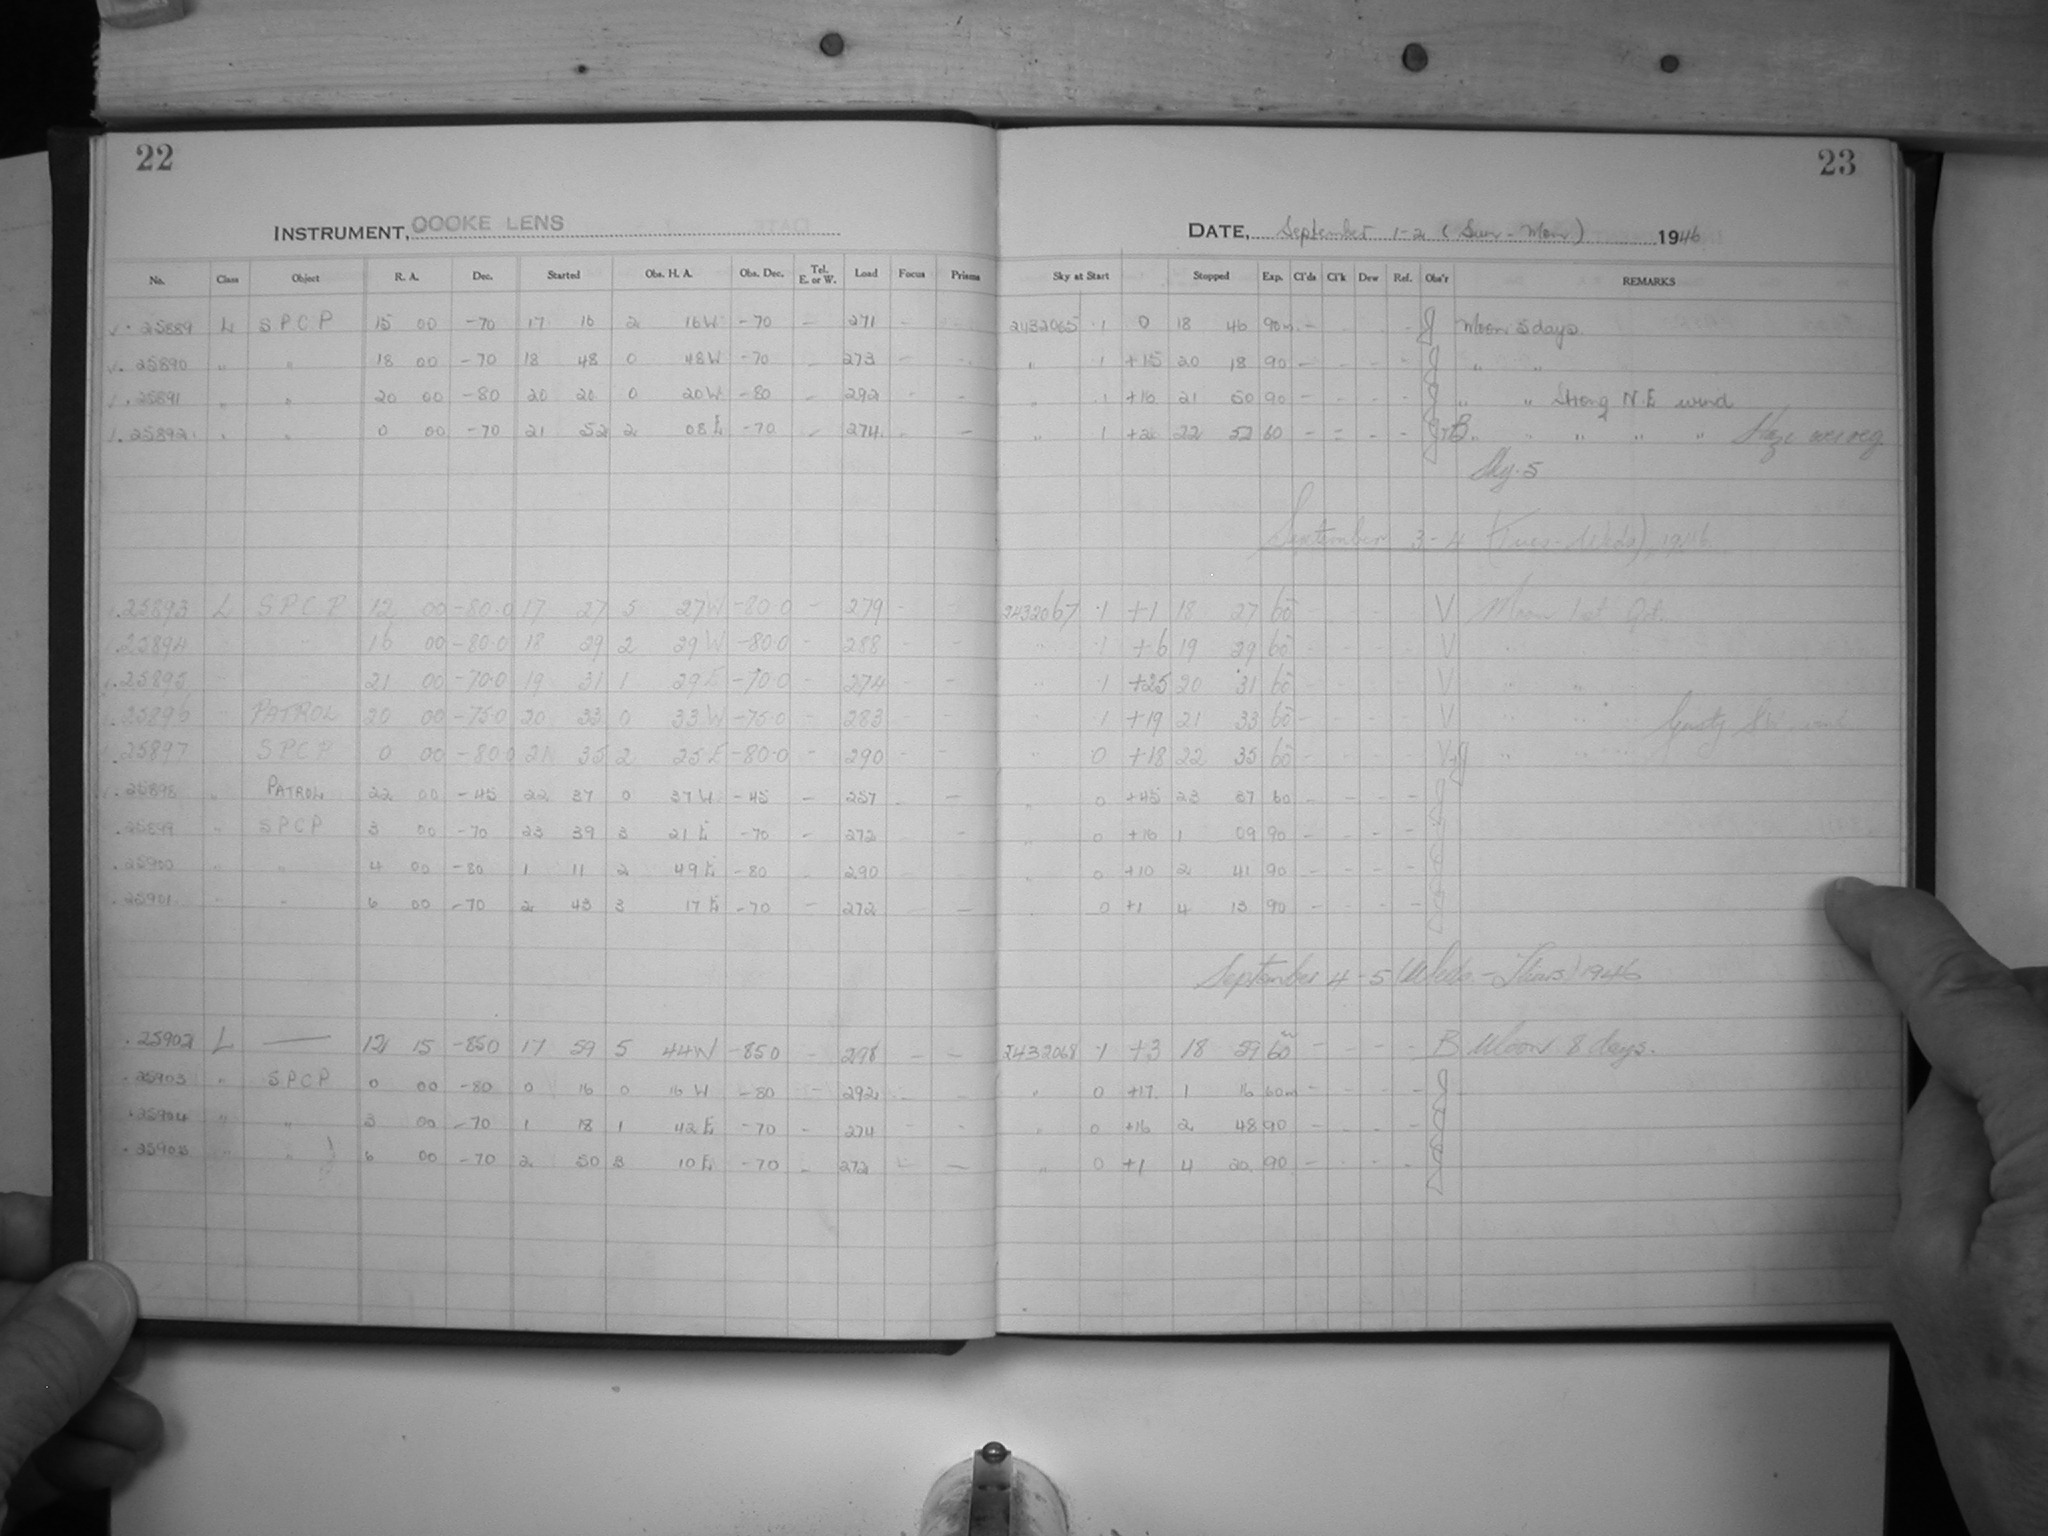 22
23
INSTRUMENT, COOKE LENS
DATE, September 1-2 (Sun - Mon) 1946
No. Class Object R. A. Dec. Started Obs. H. A. Obs. Dec. Tel. E. or W. Load Focus Prisms Sky at Start Stopped Exp. Cl'ds Cl'k Dew Ref. Obs'r REMARKS
25889 L S P C P 15 00 -70 17 16 2 16 W -70 - 271 - - 2432065 .1 0 18 46 90m - - Moon 5 days.
25890 " " 18 00 -70 18 48 0 48 W -70 - 273 - - " 1 +15 20 18 90 - - - - " "
25891 " " 20 00 -80 20 20 0 20 W -80 - 292 - - " .1 +10 21 50 90 - - - - " " Strong N.E wind
25892 " " 0 00 -70 21 52 2 08 E -70 - 274 - - " 1 22 52 60 - - - - J+B " " " " " Haze
Sky. 5
September 3-4 (Tues-Weds), 1946
.25893 L S P C P 12 00 -80.0 17 27 5 27 W -80.0 - 279 - - 2432067 .1 +1 18 27 60 - - - - V Moon 1st Qtr.
.25894 " " 16 00 -80.0 18 29 2 29 W -80.0 - 288 - - " .1 +6 19 29 60 - - - - V " "
.25895 " " 21 00 -70.0 19 31 1 29 E -70.0 - 274 - - " .1 +25 20 31 60 - - - - V " "
.25896 " PATROL 20 00 -75.0 20 33 0 33 W -75.0 - 283 - - " .1 +19 21 33 60 - - - - V " " " Gusty SW wind
.25897 " S P C P 0 00 -80.0 21 35 2 25 E -80.0 - 290 - - " 0 +18 22 35 60 - - - - V+J " " " "
.25898 " PATROL 22 00 -45 22 37 0 37 W -45 - 257 - - " 0 +45 23 37 60 - - - - J
.25899 " S P C P 3 00 -70 23 39 3 21 E -70 - 272 - " 0 +16 1 09 90 - - - - J
.25900 " " 4 00 -80 1 11 2 49 E -80 - 290 - - " 0 +10 2 41 90 - - - - J
.25901 " " 6 00 -70 2 43 3 17 E -70 - 272 - - " 0 +1 4 13 90 - - - - J
September 4-5 (Weds - Thurs) 1946
.25902 L — 12 15 -85.0 17 59 5 44 W -85.0 - 298 - - 2432068 .1 +3 18 59 60 - - - - B Moon 8 days.
.25903 " S P C P 0 00 -80 0 16 0 16 W -80 - 292 - - " 0 +17 1 16 60m - - - - J
.25904 " " 3 00 -70 1 18 1 42 E -70 - 274 - - " 0 +16 2 48 90 - - - - J
.25905 " " 6 00 -70 2 50 3 10 E -70 - 272 - - " 0 +1 4 20 90 - - - - J